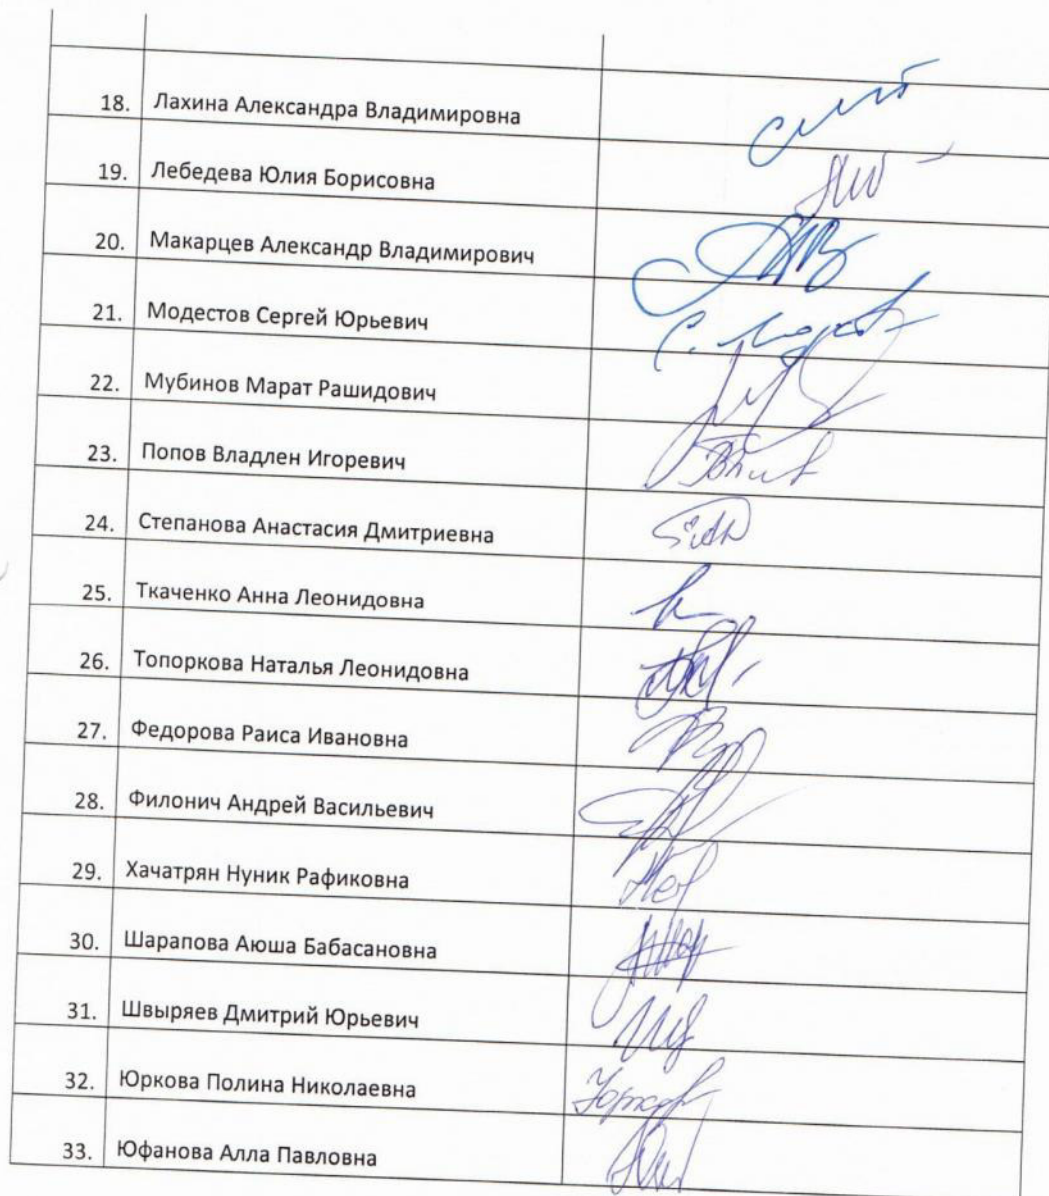 18. Лахина Александра Владимировна
19. Лебедева Юлия Борисовна
20. Макарцев Александр Владимирович
21. Модестов Сергей Юрьевич
22. Мубинов Марат Рашидович
23. Попов Владлен Игоревич
24. Степанова Анастасия Дмитриевна
25. Ткаченко Анна Леонидовна
26. Топоркова Наталья Леонидовна
27. Федорова Раиса Ивановна
28. Филонич Андрей Васильевич
29. Хачатрян Нуник Рафиковна
30. Шарапова Аюша Бабасановна
31. Швыряев Дмитрий Юрьевич
32. Юркова Полина Николаевна
33. Юфанова Алла Павловна